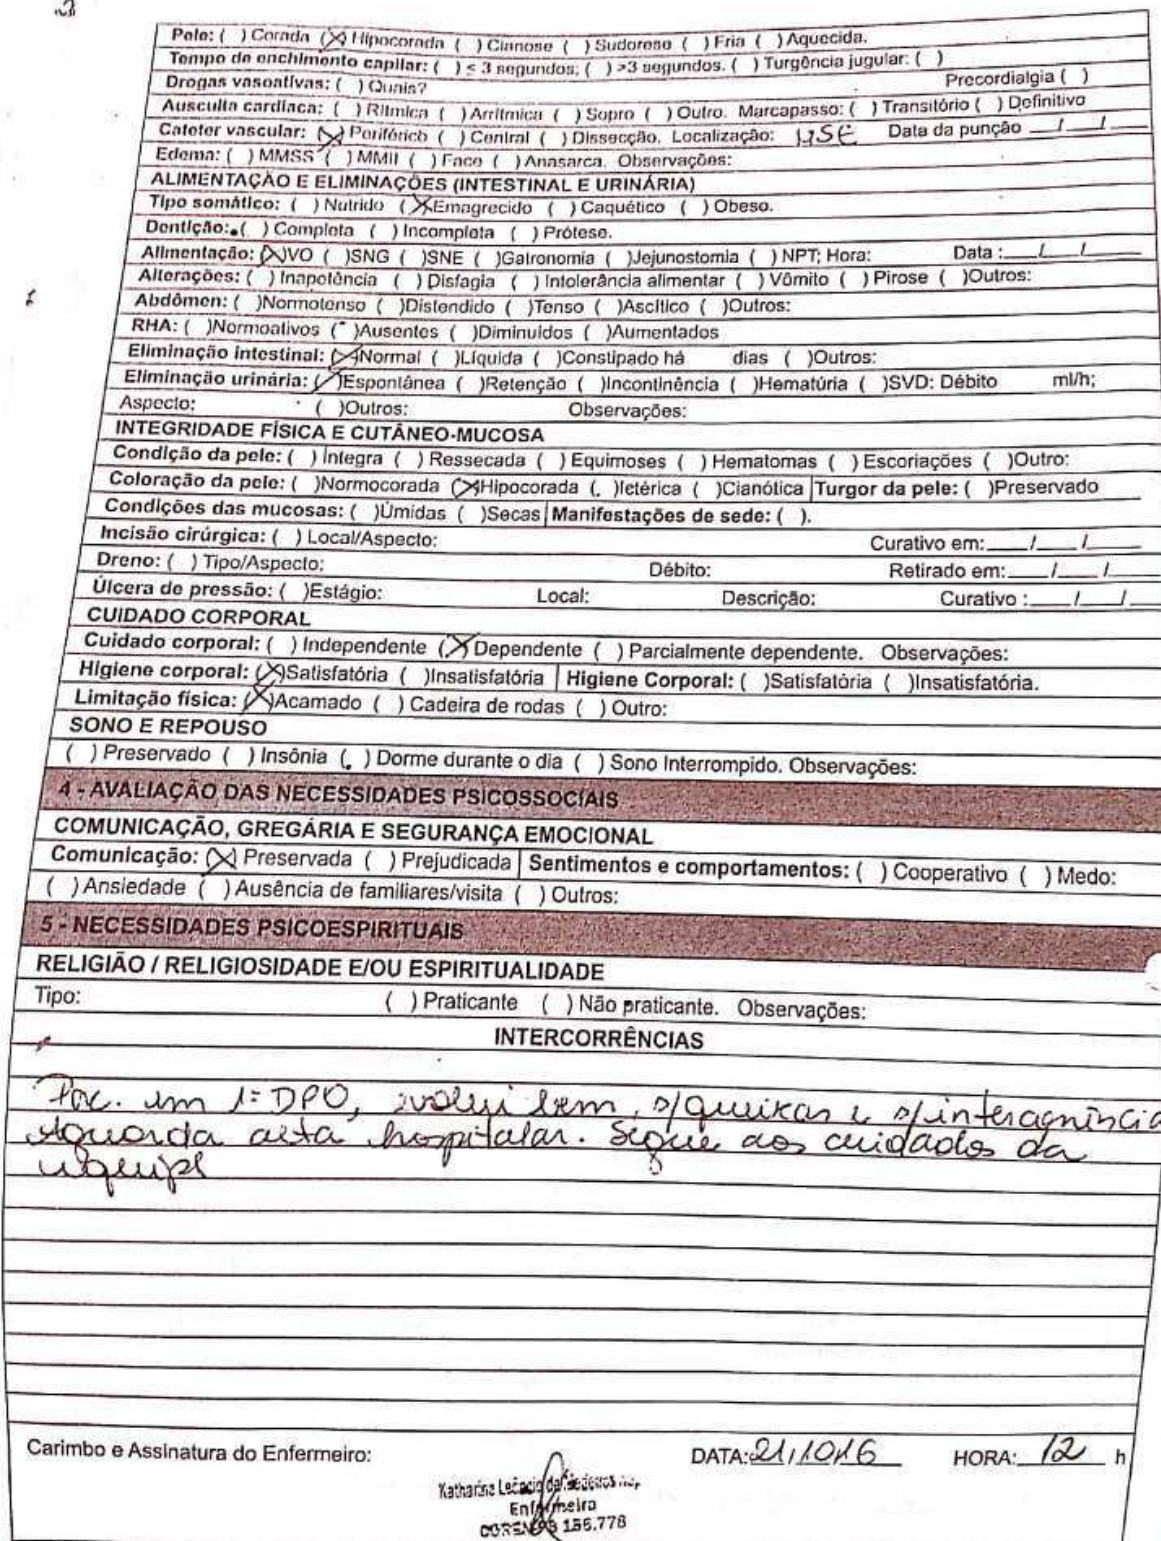 Pele: ( ) Corada (X) Hipocorada ( ) Cianose ( ) Sudorese ( ) Fria ( ) Aquecida.
Tempo de enchimento capilar: ( ) ≤ 3 segundos; ( ) >3 segundos. ( ) Turgência jugular: ( )
Drogas vasoativas: ( ) Quais? Precordialgia ( )
Ausculta cardíaca: ( ) Rítmica ( ) Arrítmica ( ) Sopro ( ) Outro. Marcapasso: ( ) Transitório ( ) Definitivo
Cateter vascular: (X) Periférico ( ) Central ( ) Dissecção. Localização: MSE Data da punção __/__/__
Edema: ( ) MMSS ( ) MMII ( ) Face ( ) Anasarca. Observações:
ALIMENTAÇÃO E ELIMINAÇÕES (INTESTINAL E URINÁRIA)
Tipo somático: ( ) Nutrido (X) Emagrecido ( ) Caquético ( ) Obeso.
Dentição: ( ) Completa ( ) Incompleta ( ) Prótese.
Alimentação: (X)VO ( )SNG ( )SNE ( )Gatronomia ( )Jejunostomia ( ) NPT; Hora: Data :__/__/__
Alterações: ( ) Inapetência ( ) Disfagia ( ) Intolerância alimentar ( ) Vômito ( ) Pirose ( )Outros:
Abdômen: ( )Normotenso ( )Distendido ( )Tenso ( )Ascítico ( )Outros:
RHA: ( )Normoativos ( )Ausentes ( )Diminuídos ( )Aumentados
Eliminação intestinal: (X)Normal ( )Líquida ( )Constipado há dias ( )Outros:
Eliminação urinária: (/)Espontânea ( )Retenção ( )Incontinência ( )Hematúria ( )SVD: Débito ml/h;
Aspecto: ( )Outros: Observações:
INTEGRIDADE FÍSICA E CUTÂNEO-MUCOSA
Condição da pele: ( ) Íntegra ( ) Ressecada ( ) Equimoses ( ) Hematomas ( ) Escoriações ( )Outro:
Coloração da pele: ( )Normocorada (X)Hipocorada ( )Ictérica ( )Cianótica Turgor da pele: ( )Preservado
Condições das mucosas: ( )Úmidas ( )Secas Manifestações de sede: ( ).
Incisão cirúrgica: ( ) Local/Aspecto: Curativo em:__/__/__
Dreno: ( ) Tipo/Aspecto: Débito: Retirado em:__/__/__
Úlcera de pressão: ( )Estágio: Local: Descrição: Curativo :__/__/__
CUIDADO CORPORAL
Cuidado corporal: ( ) Independente (X) Dependente ( ) Parcialmente dependente. Observações:
Higiene corporal: (X)Satisfatória ( )Insatisfatória Higiene Corporal: ( )Satisfatória ( )Insatisfatória.
Limitação física: (X)Acamado ( ) Cadeira de rodas ( ) Outro:
SONO E REPOUSO
( ) Preservado ( ) Insônia ( ) Dorme durante o dia ( ) Sono Interrompido. Observações:
4 - AVALIAÇÃO DAS NECESSIDADES PSICOSSOCIAIS
COMUNICAÇÃO, GREGÁRIA E SEGURANÇA EMOCIONAL
Comunicação: (X) Preservada ( ) Prejudicada Sentimentos e comportamentos: ( ) Cooperativo ( ) Medo:
( ) Ansiedade ( ) Ausência de familiares/visita ( ) Outros:
5 - NECESSIDADES PSICOESPIRITUAIS
RELIGIÃO / RELIGIOSIDADE E/OU ESPIRITUALIDADE
Tipo: ( ) Praticante ( ) Não praticante. Observações:
INTERCORRÊNCIAS
Pac. em 1º DPO, evolui bem, s/queixas e s/
Aguarda alta hospitalar. Segue aos cuidados da
equipe
Carimbo e Assinatura do Enfermeiro: DATA: 21/10/16 HORA: 12 h
Enfermeiro
COREN-PB 156.778